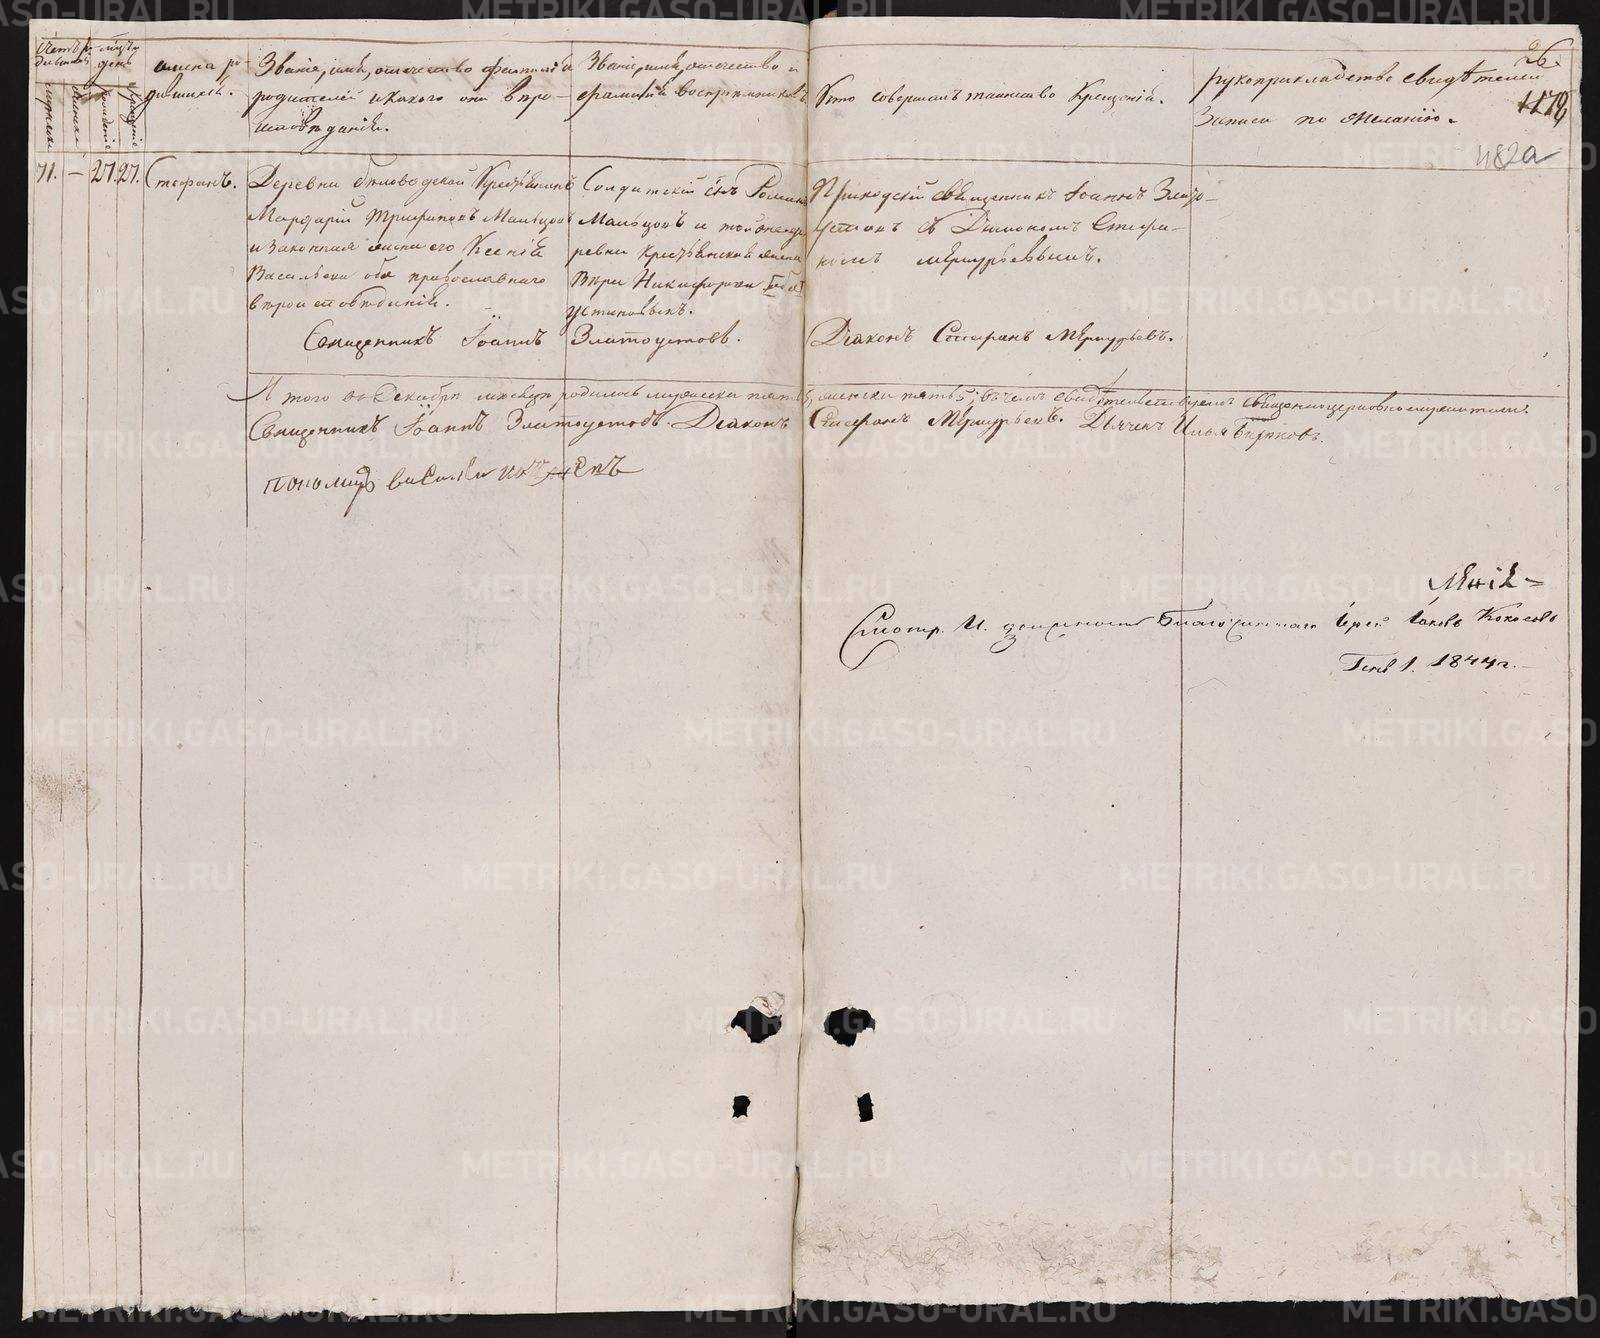 Имена ро-
дившихся.
Званіе, имя, отечество и фамилія
родителей и какого они вѣро-
исповѣданія.
Званіе, имя, отечество и
фамилія воспріемниковъ.
Кто совершалъ таинство Крещенія.
рукоприкладство свидѣтелей
Записи по желанію.
26.
1179
482а
71. — 27. 27. Стефанъ.
Деревни Крестьянинъ
Мардарій Трифановъ Мальцовъ
и законная жена его Ксенія
Васильева оба православнаго
вѣроисповѣданія.
Солдатскій сынъ
Мальцовъ и той же де
ревни крестьянская жена
Вѣра Никифорова
Устиновыхъ.
Приходскій священникъ Іоаннъ Злато-
устовъ съ Діакономъ Стефа-
номъ Меркурьевымъ.
Священникъ Іоаннъ Златоустовъ.
Діаконъ Стефанъ Меркурьевъ.
Итого въ Декабрѣ месяце родилось мужеска пять 5, женска пять 5; въ чемъ свидѣтельствуемъ священноцерковнослужители:
Священникъ Іоаннъ Златоустовъ. Діаконъ Стефанъ Меркурьевъ. Дьячекъ Илья Бирюковъ.
пономарь василеи
Смотр. И. должность Благочиннаго Іерей Іаковъ
Генв 1. 1844 г.
METRIKI.GASO-URAL.RU